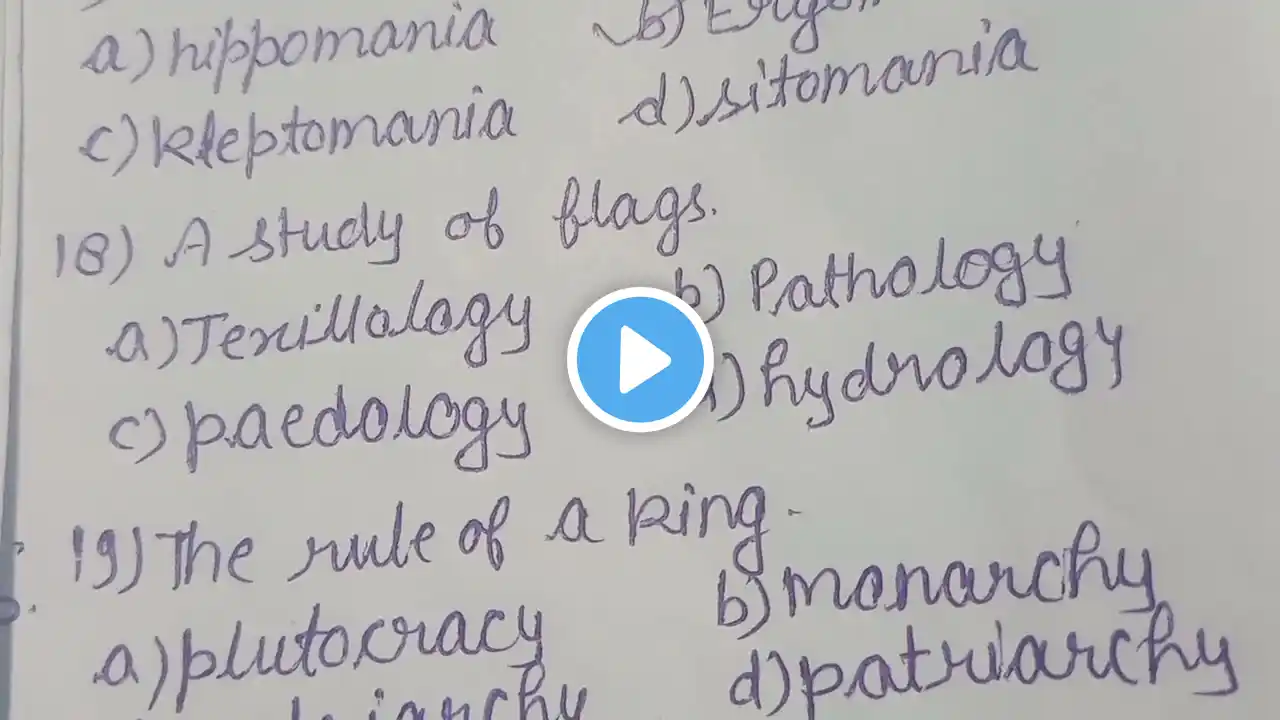 a) hippomania
c) kleptomania d) sitomania
18) A study of flags.
a) Texillology b) Pathology
c) paedology d) hydrology
19) The rule of a king.
a) plutocracy b) monarchy
d) patriarchy